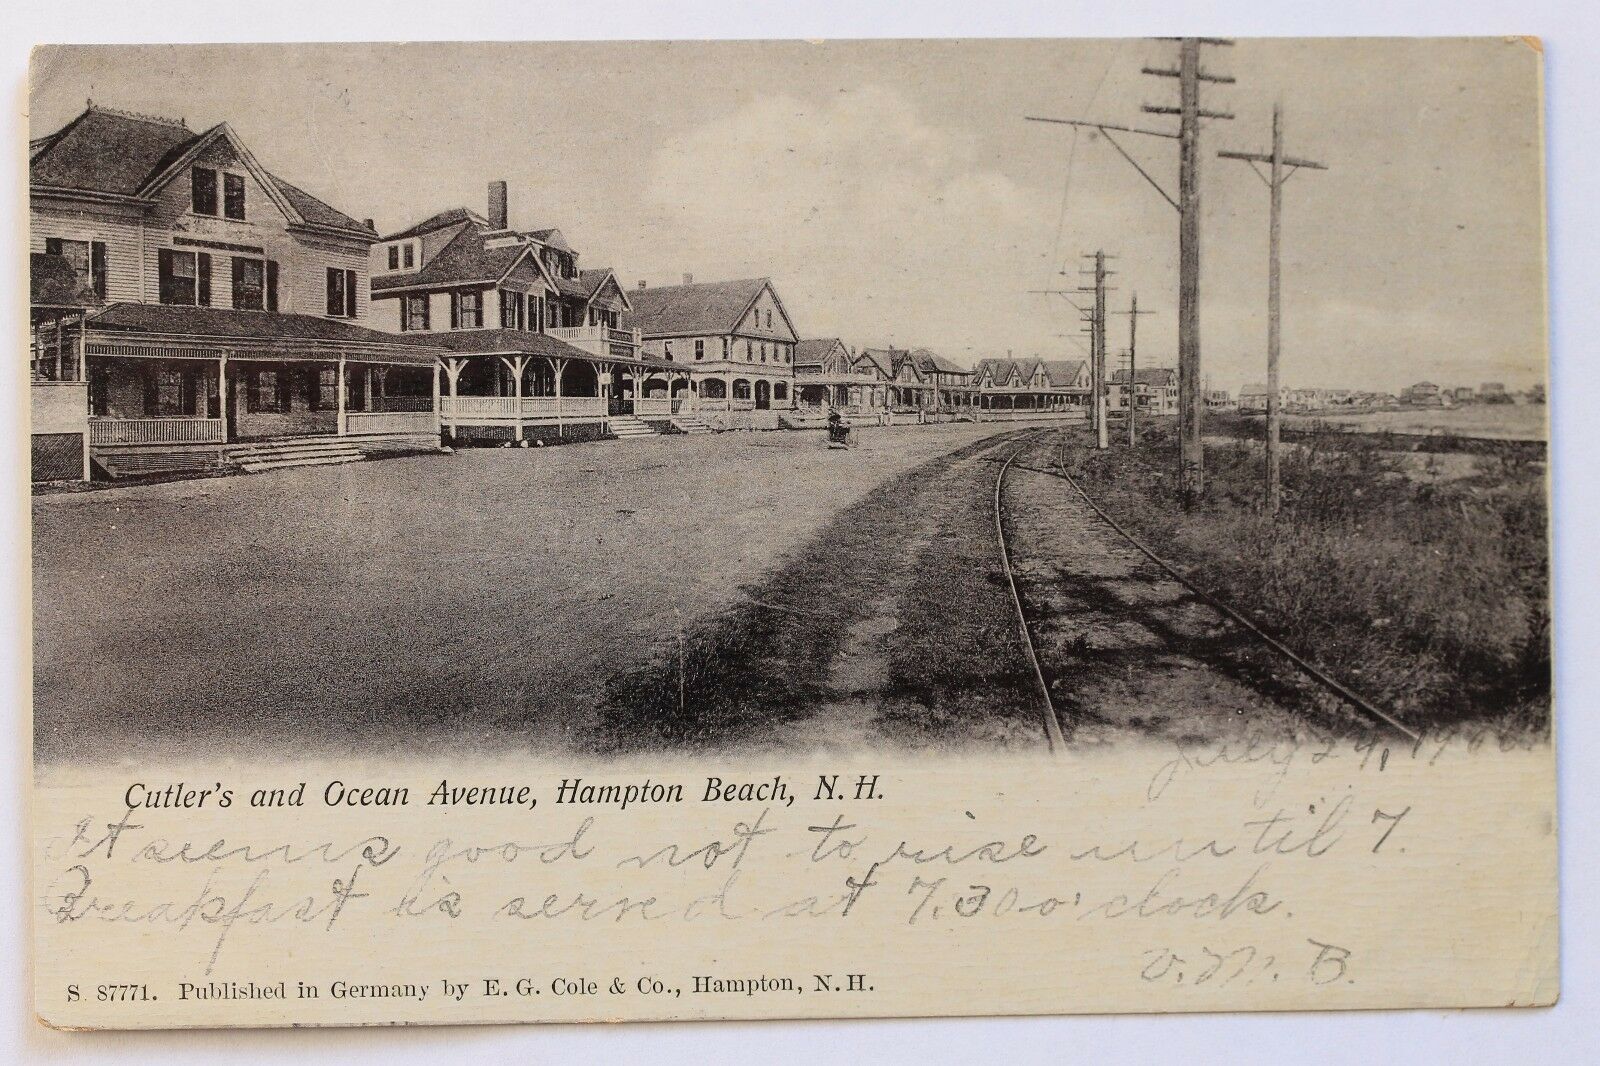 July 24, 1906
Cutler's and Ocean Avenue, Hampton Beach, N. H.
It seems good not to rise until 7.
Breakfast is served at 7.30 o'clock.
V. M. B.
S. 87771. Published in Germany by E. G. Cole & Co., Hampton, N. H.